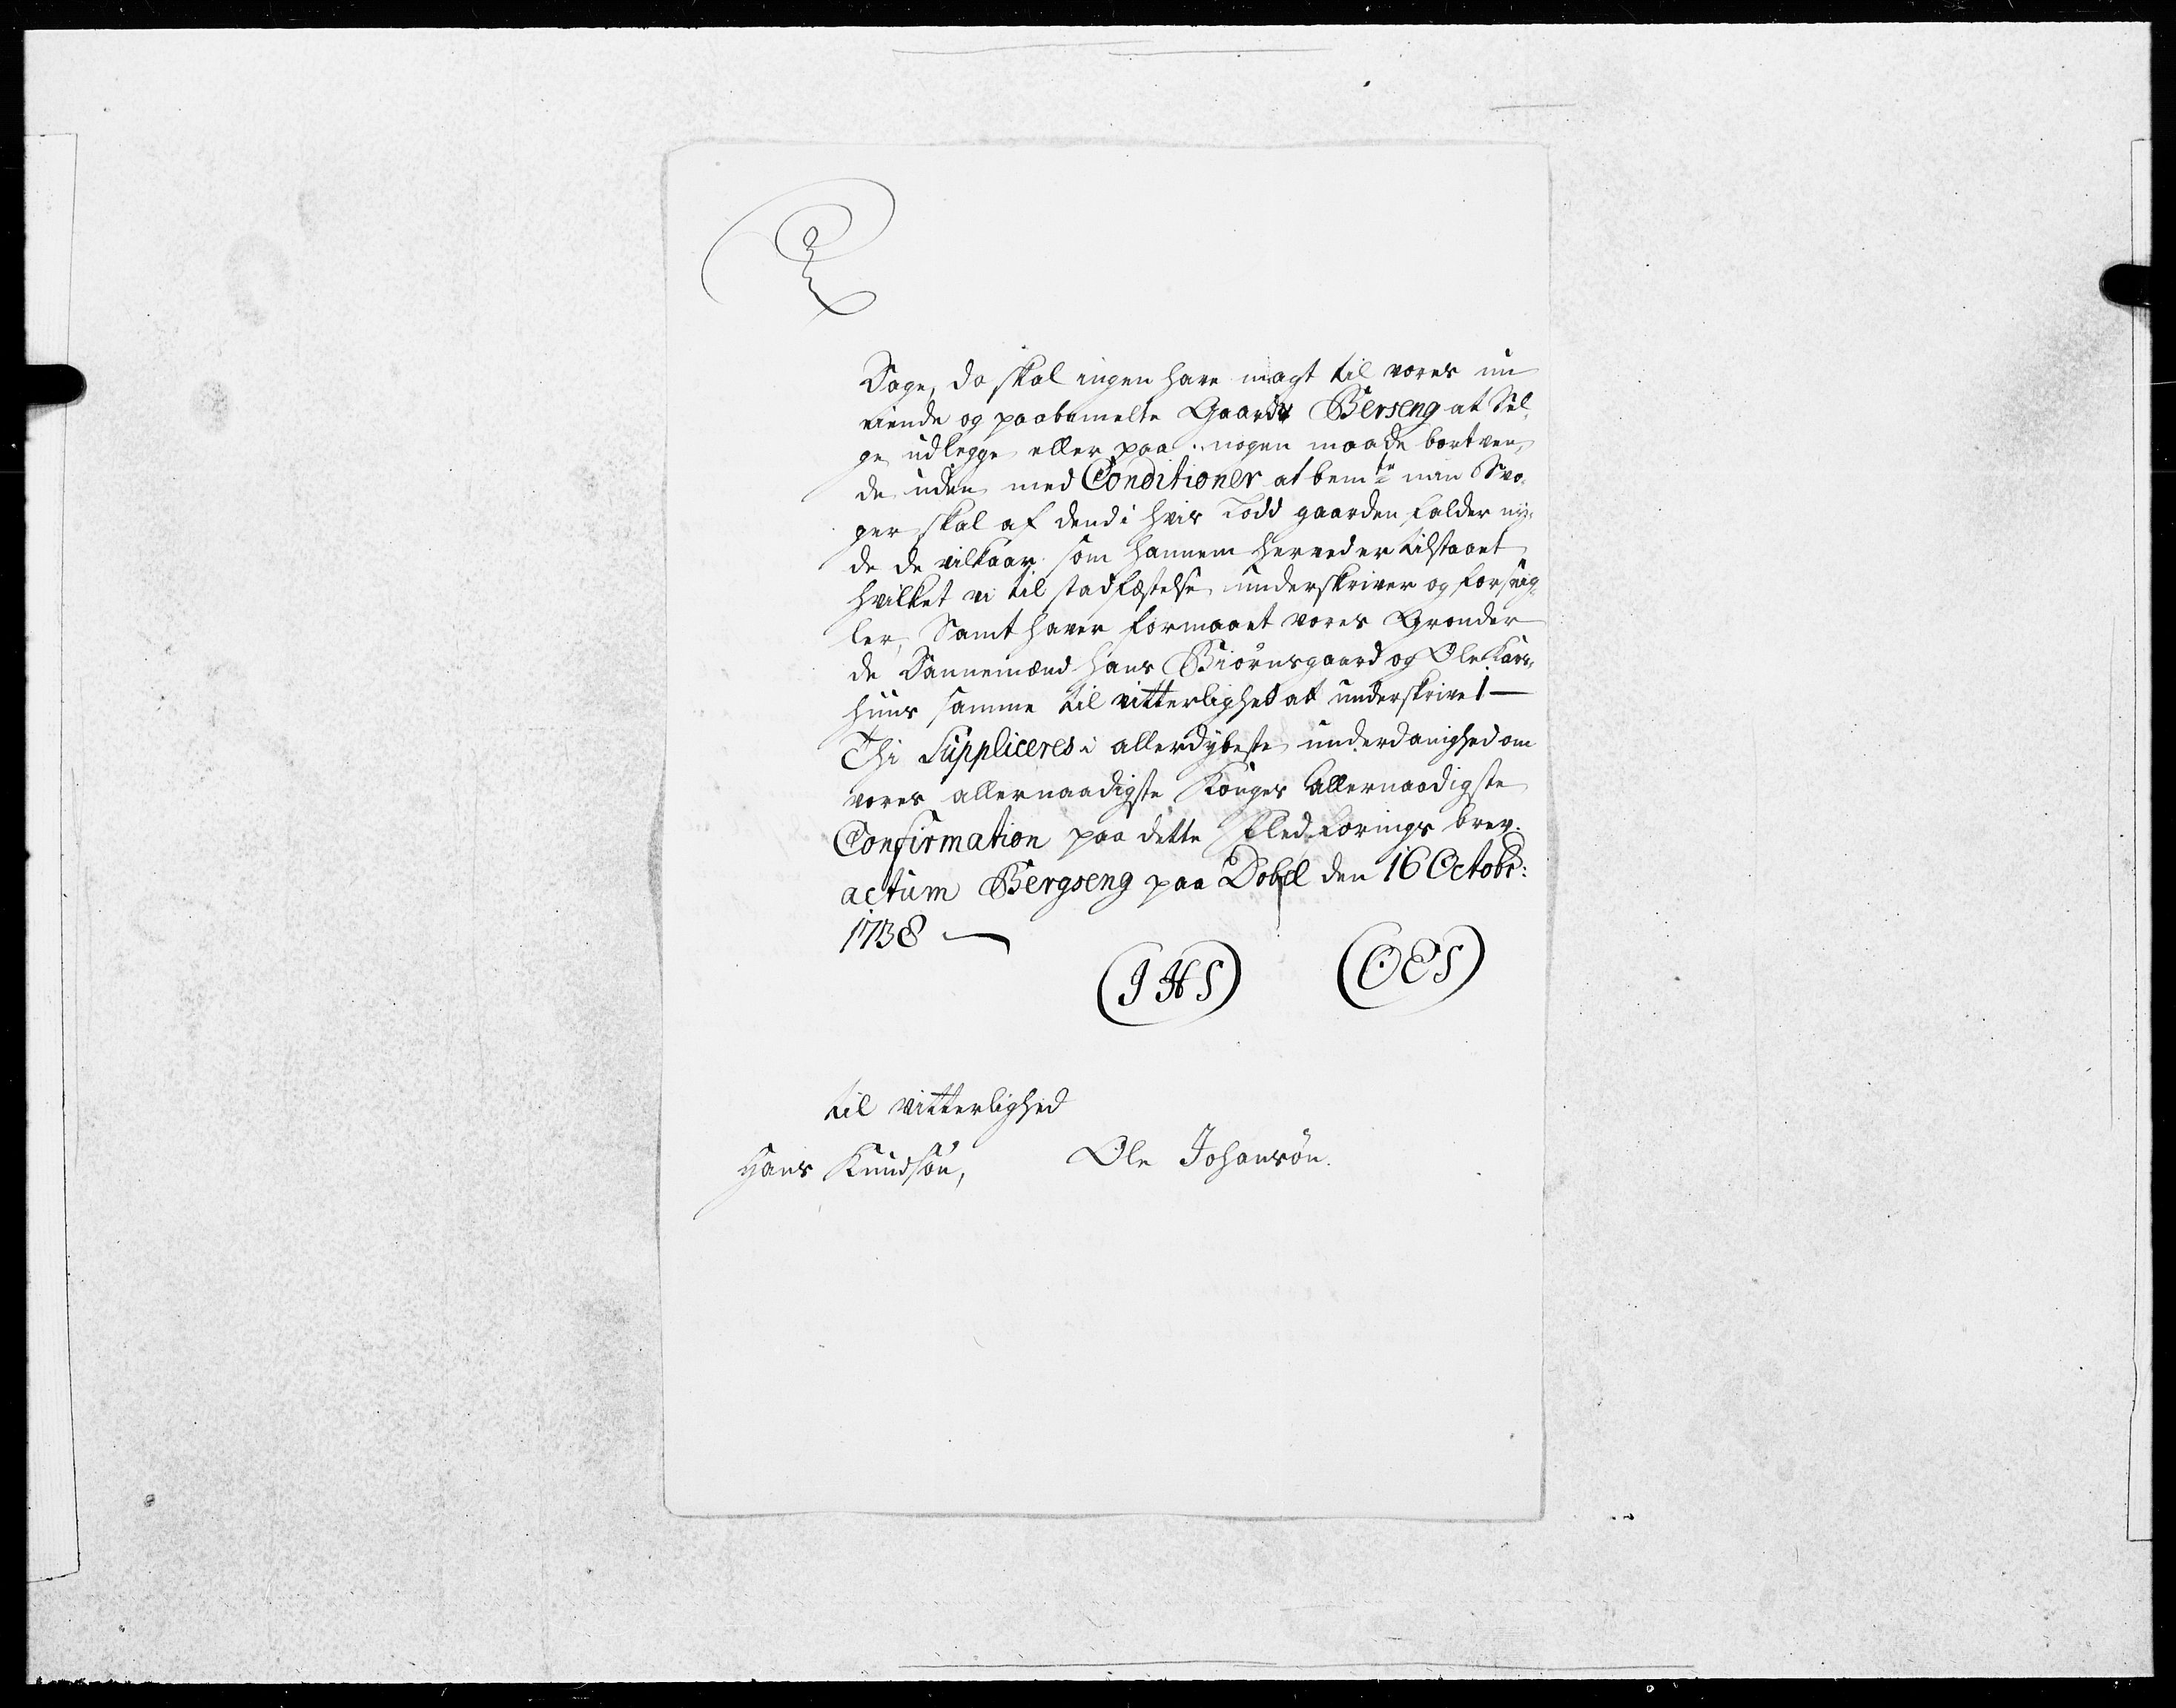 Dage, da skal ingen have magt til vores nu
eiende og paabemelte Gaard Berseng at Sel¬
ge udlegge eller paa nogen maade bortven¬
de uden med Conditioner at bemte min Svo¬
ger skal af dend i hvis Lodd gaarden falder ny¬
de de vilkaar som hannem herved er tilstaaet
hvilket vi til stadfæstelse underskriver og forseig¬
ler, Samt haver formaaet vores Grander
de Dannemænd Hans Biörnsgaard og Ole Kars¬
huus samme til vitterlighed at underskrive
Thi Suppliceres i allerdybeste underdanighed om
vores allernaadigste Konges Allernaadigste
Confirmation paa dette Fledförings brev.
actum Bergseng paa Dobel den 16 Octobr:
1738
(JHS) (OES)
til vitterlighed
Hans Knudsön, Ole Johansön.